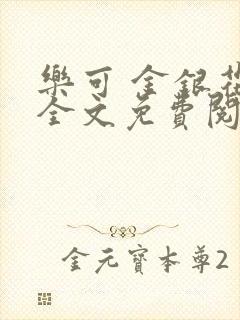 樂可 金銀花
全文免費閱
金元寶本尊2